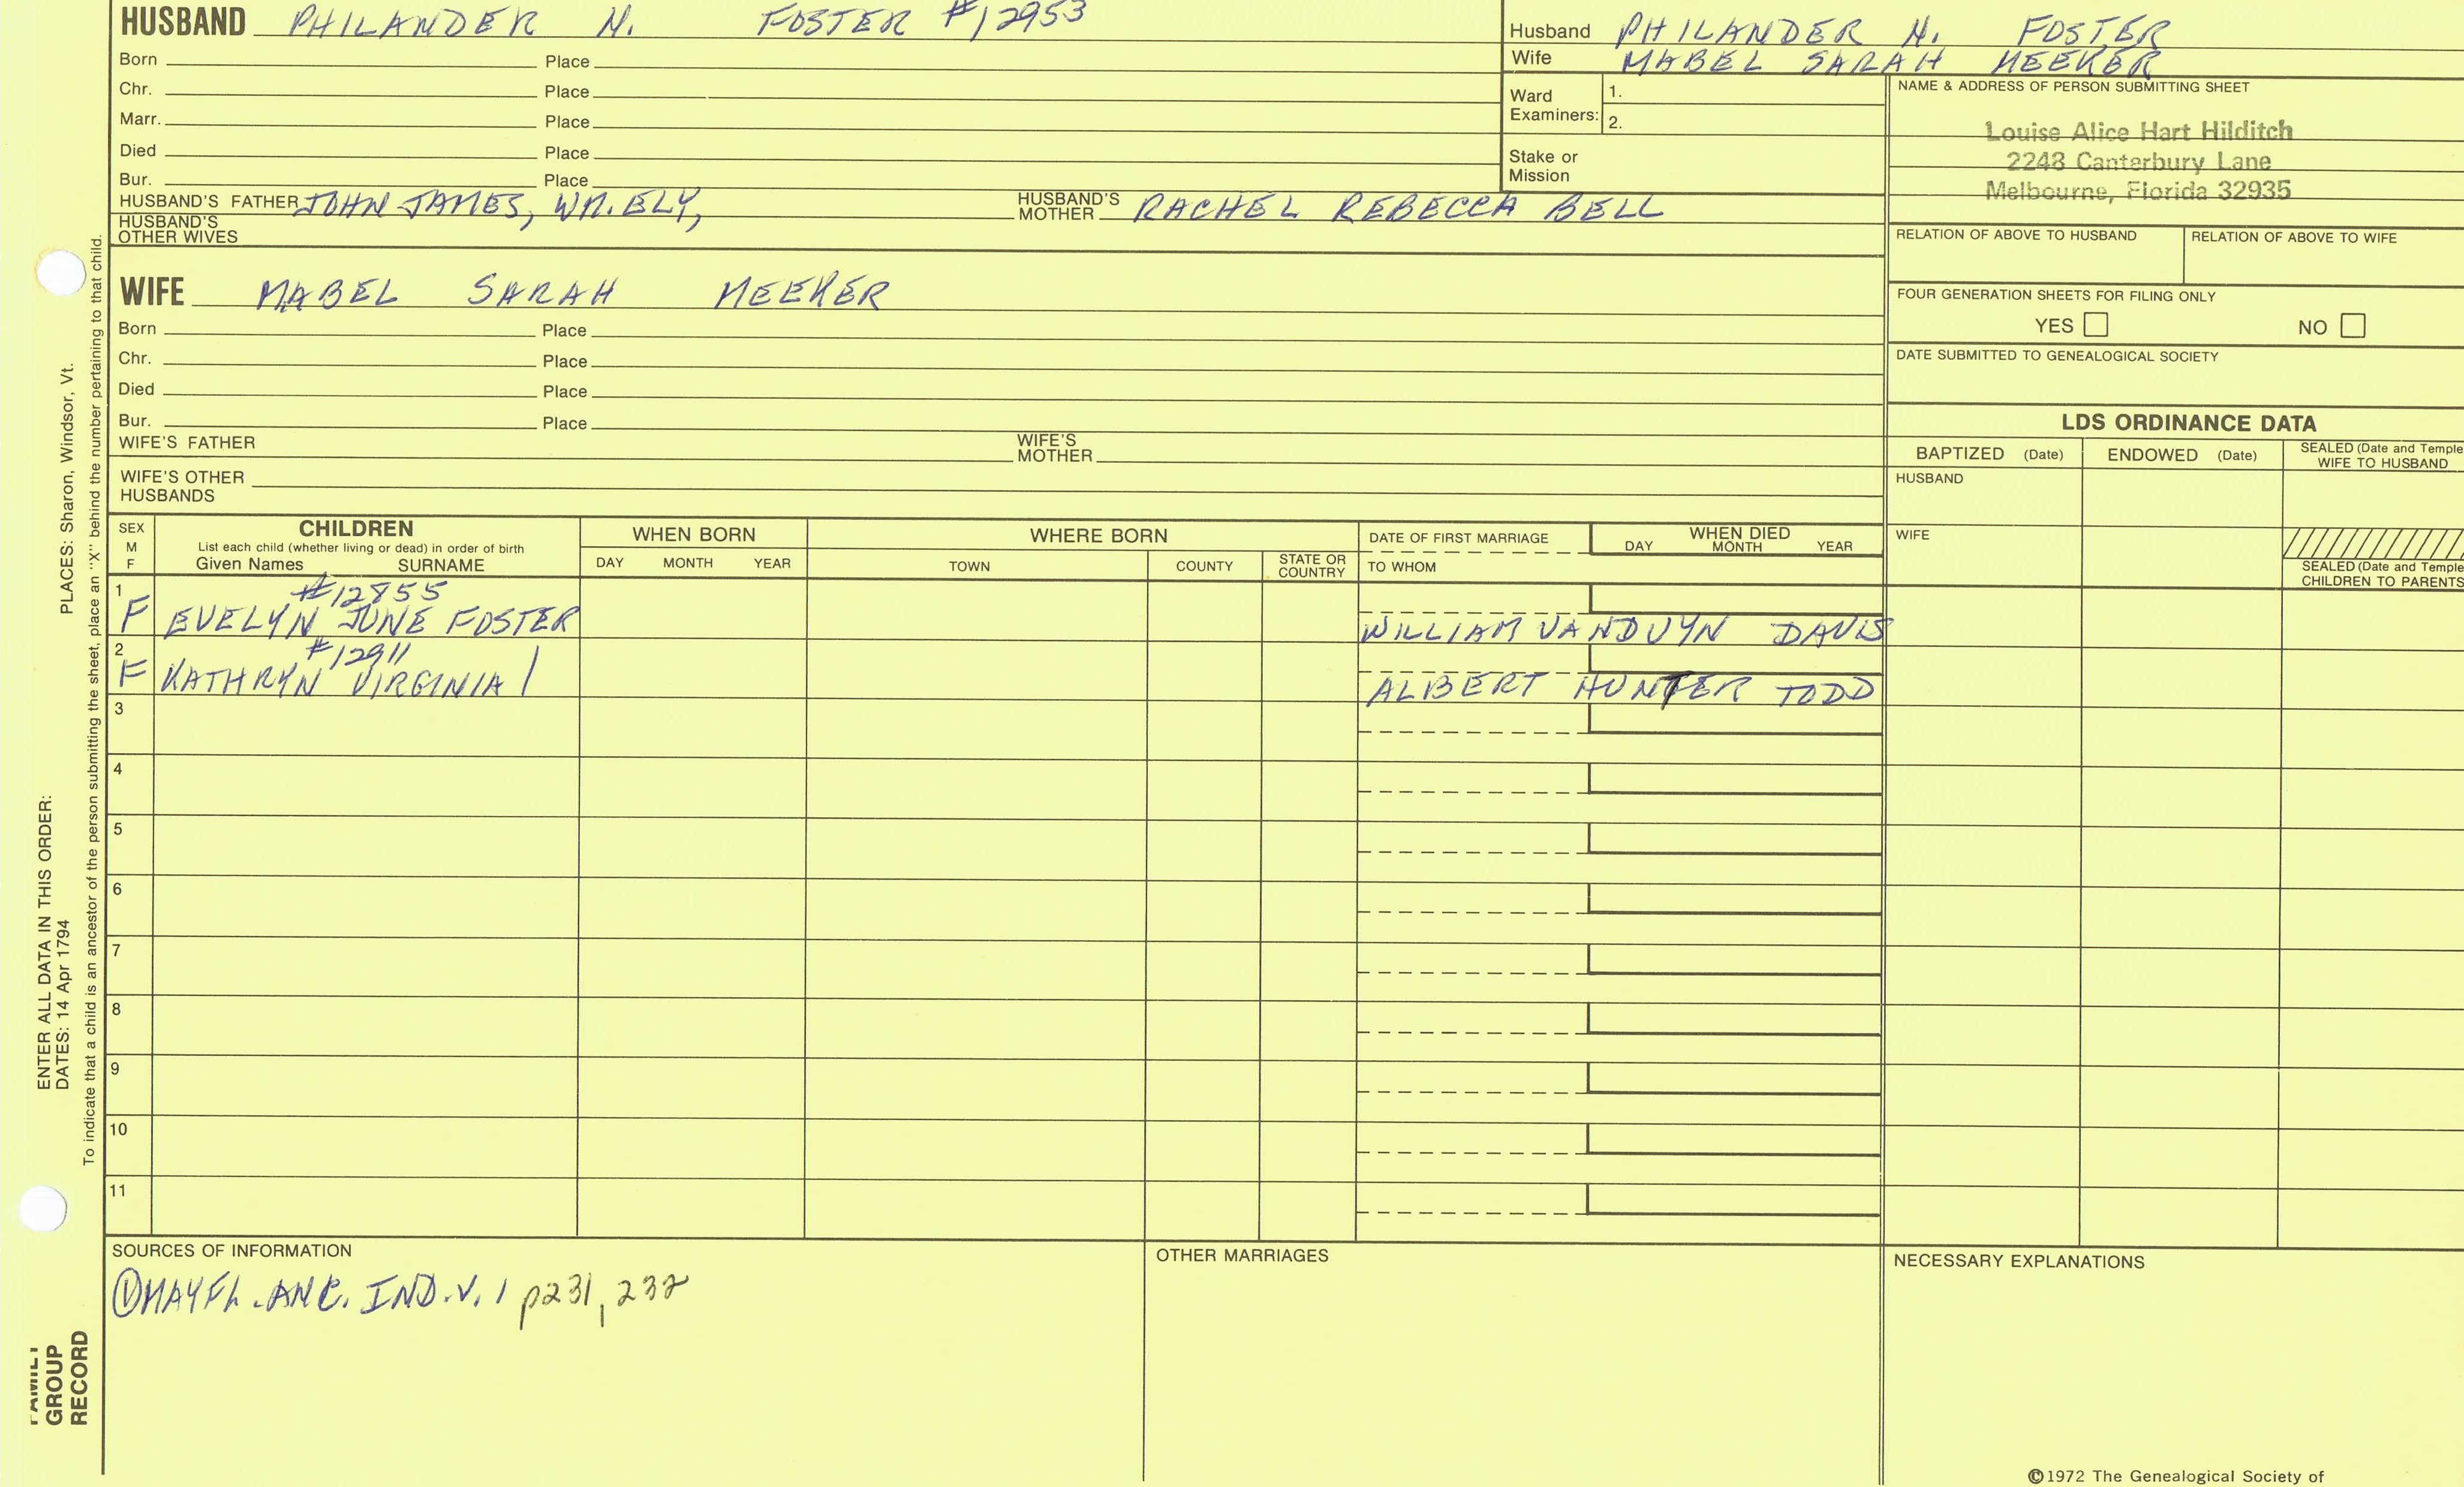 HUSBAND PHILANDER N. FOSTER #12953
Born Place
Chr. Place
Marr. Place
Died Place
Bur. Place
HUSBAND'S FATHER JOHN JAMES, WM. ELY, HUSBAND'S MOTHER RACHEL REBECCA BELL
HUSBAND'S OTHER WIVES
WIFE MABEL SARAH MEEKER
Born Place
Chr. Place
Died Place
Bur. Place
WIFE'S FATHER WIFE'S MOTHER
WIFE'S OTHER HUSBANDS
Husband PHILANDER N. FOSTER
Wife MABEL SARAH MEEKER
Ward Examiners: 1.
2.
Stake or Mission
NAME & ADDRESS OF PERSON SUBMITTING SHEET
Louise Alice Hart Hilditch
2248 Canterbury Lane
Melbourne, Florida 32935
RELATION OF ABOVE TO HUSBAND RELATION OF ABOVE TO WIFE
FOUR GENERATION SHEETS FOR FILING ONLY
YES NO
DATE SUBMITTED TO GENEALOGICAL SOCIETY
LDS ORDINANCE DATA
BAPTIZED (Date) ENDOWED (Date) SEALED (Date and Temple
WIFE TO HUSBAND
HUSBAND
WIFE
SEALED (Date and Temple
CHILDREN TO PARENTS
SEX M F
CHILDREN
List each child (whether living or dead) in order of birth
Given Names SURNAME
WHEN BORN
DAY MONTH YEAR
WHERE BORN
TOWN COUNTY STATE OR COUNTRY
DATE OF FIRST MARRIAGE
TO WHOM
WHEN DIED
DAY MONTH YEAR
1 #12855
F EVELYN JUNE FOSTER WILLIAM VANDUYN DAVIS
2 #12911
F KATHRYN VIRGINIA / ALBERT HUNTER TODD
3
4
5
6
7
8
9
10
11
SOURCES OF INFORMATION
① MAYFL. ANC. IND. V. 1 p231, 232
OTHER MARRIAGES
NECESSARY EXPLANATIONS
©1972 The Genealogical Society of
PLACES: Sharon, Windsor, Vt.
To indicate that a child is an ancestor of the person submitting the sheet, place an "X" behind the number pertaining to that child.
ENTER ALL DATA IN THIS ORDER:
DATES: 14 Apr 1794
FAMILY
GROUP
RECORD